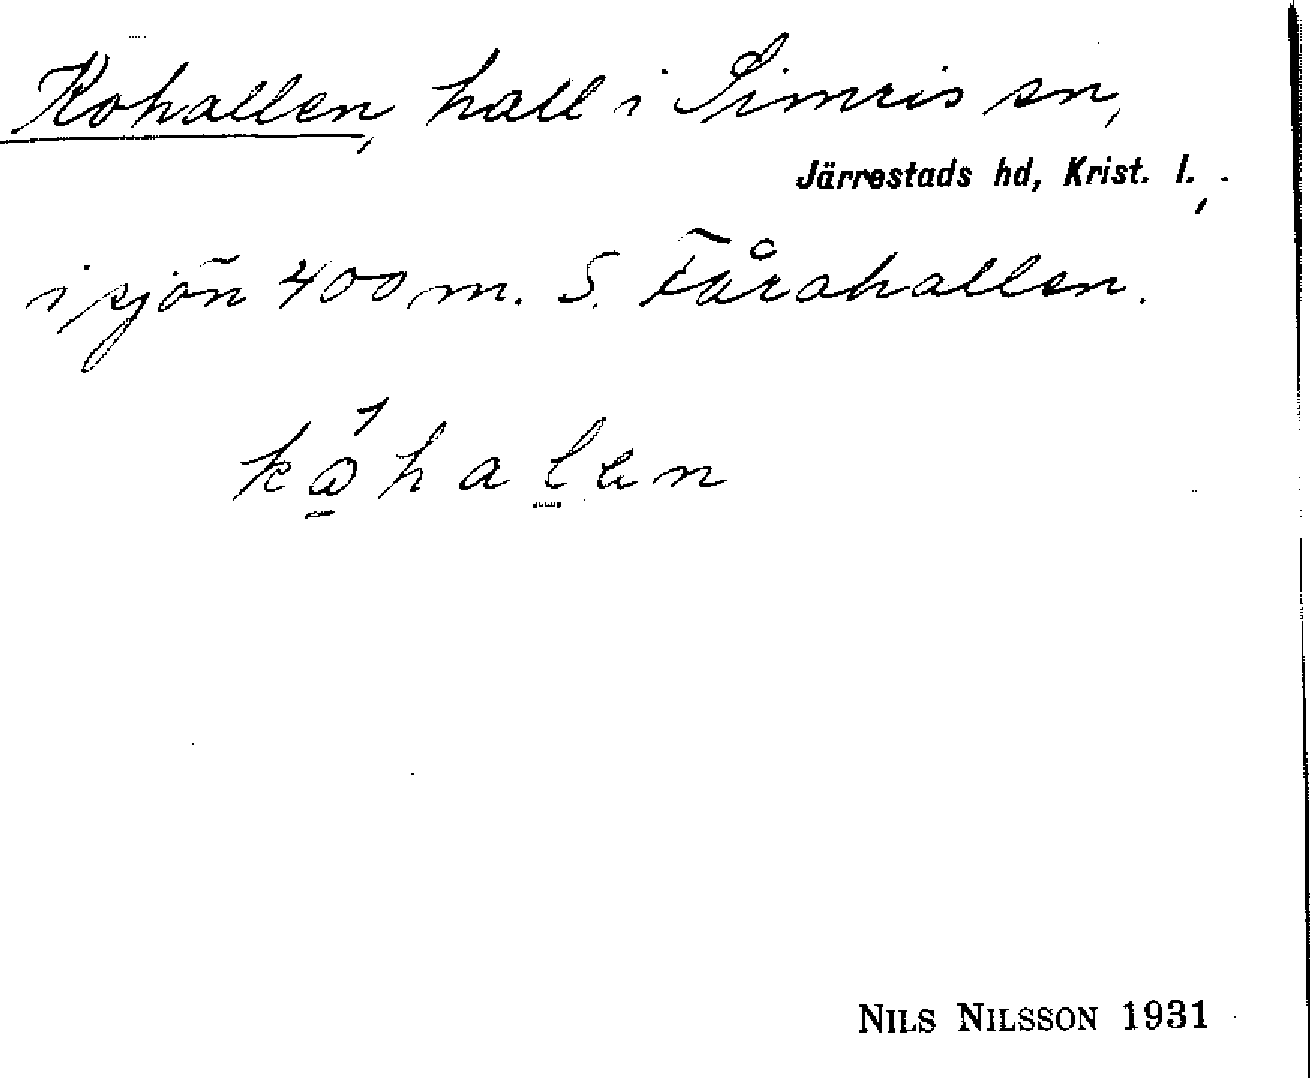 Kohallen, hall i Simris sn,
Järrestads hd, Krist. l.,
i sjön 400 m. S. Fårahallen.
NILS NILSSON 1931